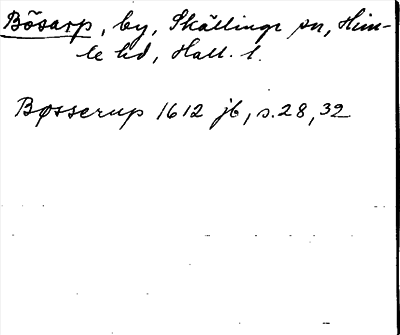 Bösarp, by, Skällinge sn, Him-
le hd, Hall. l.
Bøsserup 1612 jb, s. 28, 32